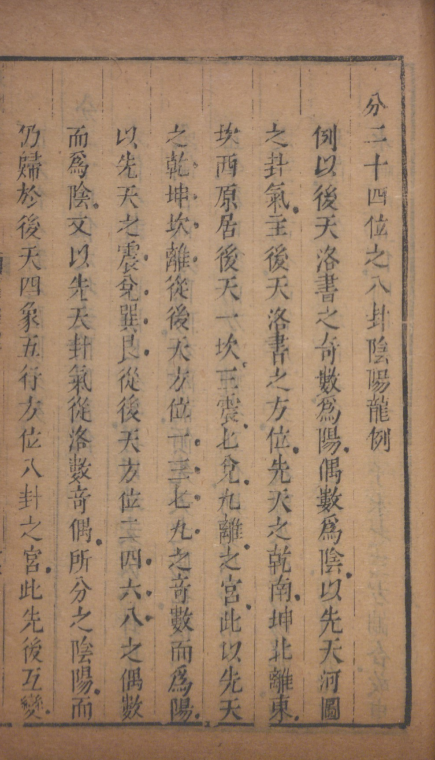 分二十四位之八卦陰陽龍例
例以後天洛書之奇數爲陽偶數爲陰以先天河圖
之卦氣主後天洛書之方位先天之乾南坤北離東
坎西原居後天一坎三震七兌九離之宮此以先天
之乾坤坎離從後天方位一三七九之奇數而爲陽
以先天之震兌巽艮從後天方位二四六八之偶數
而爲陰又以先天卦氣從洛數奇偶所分之陰陽而
仍歸於後天四象五行方位八卦之宮此先後互變